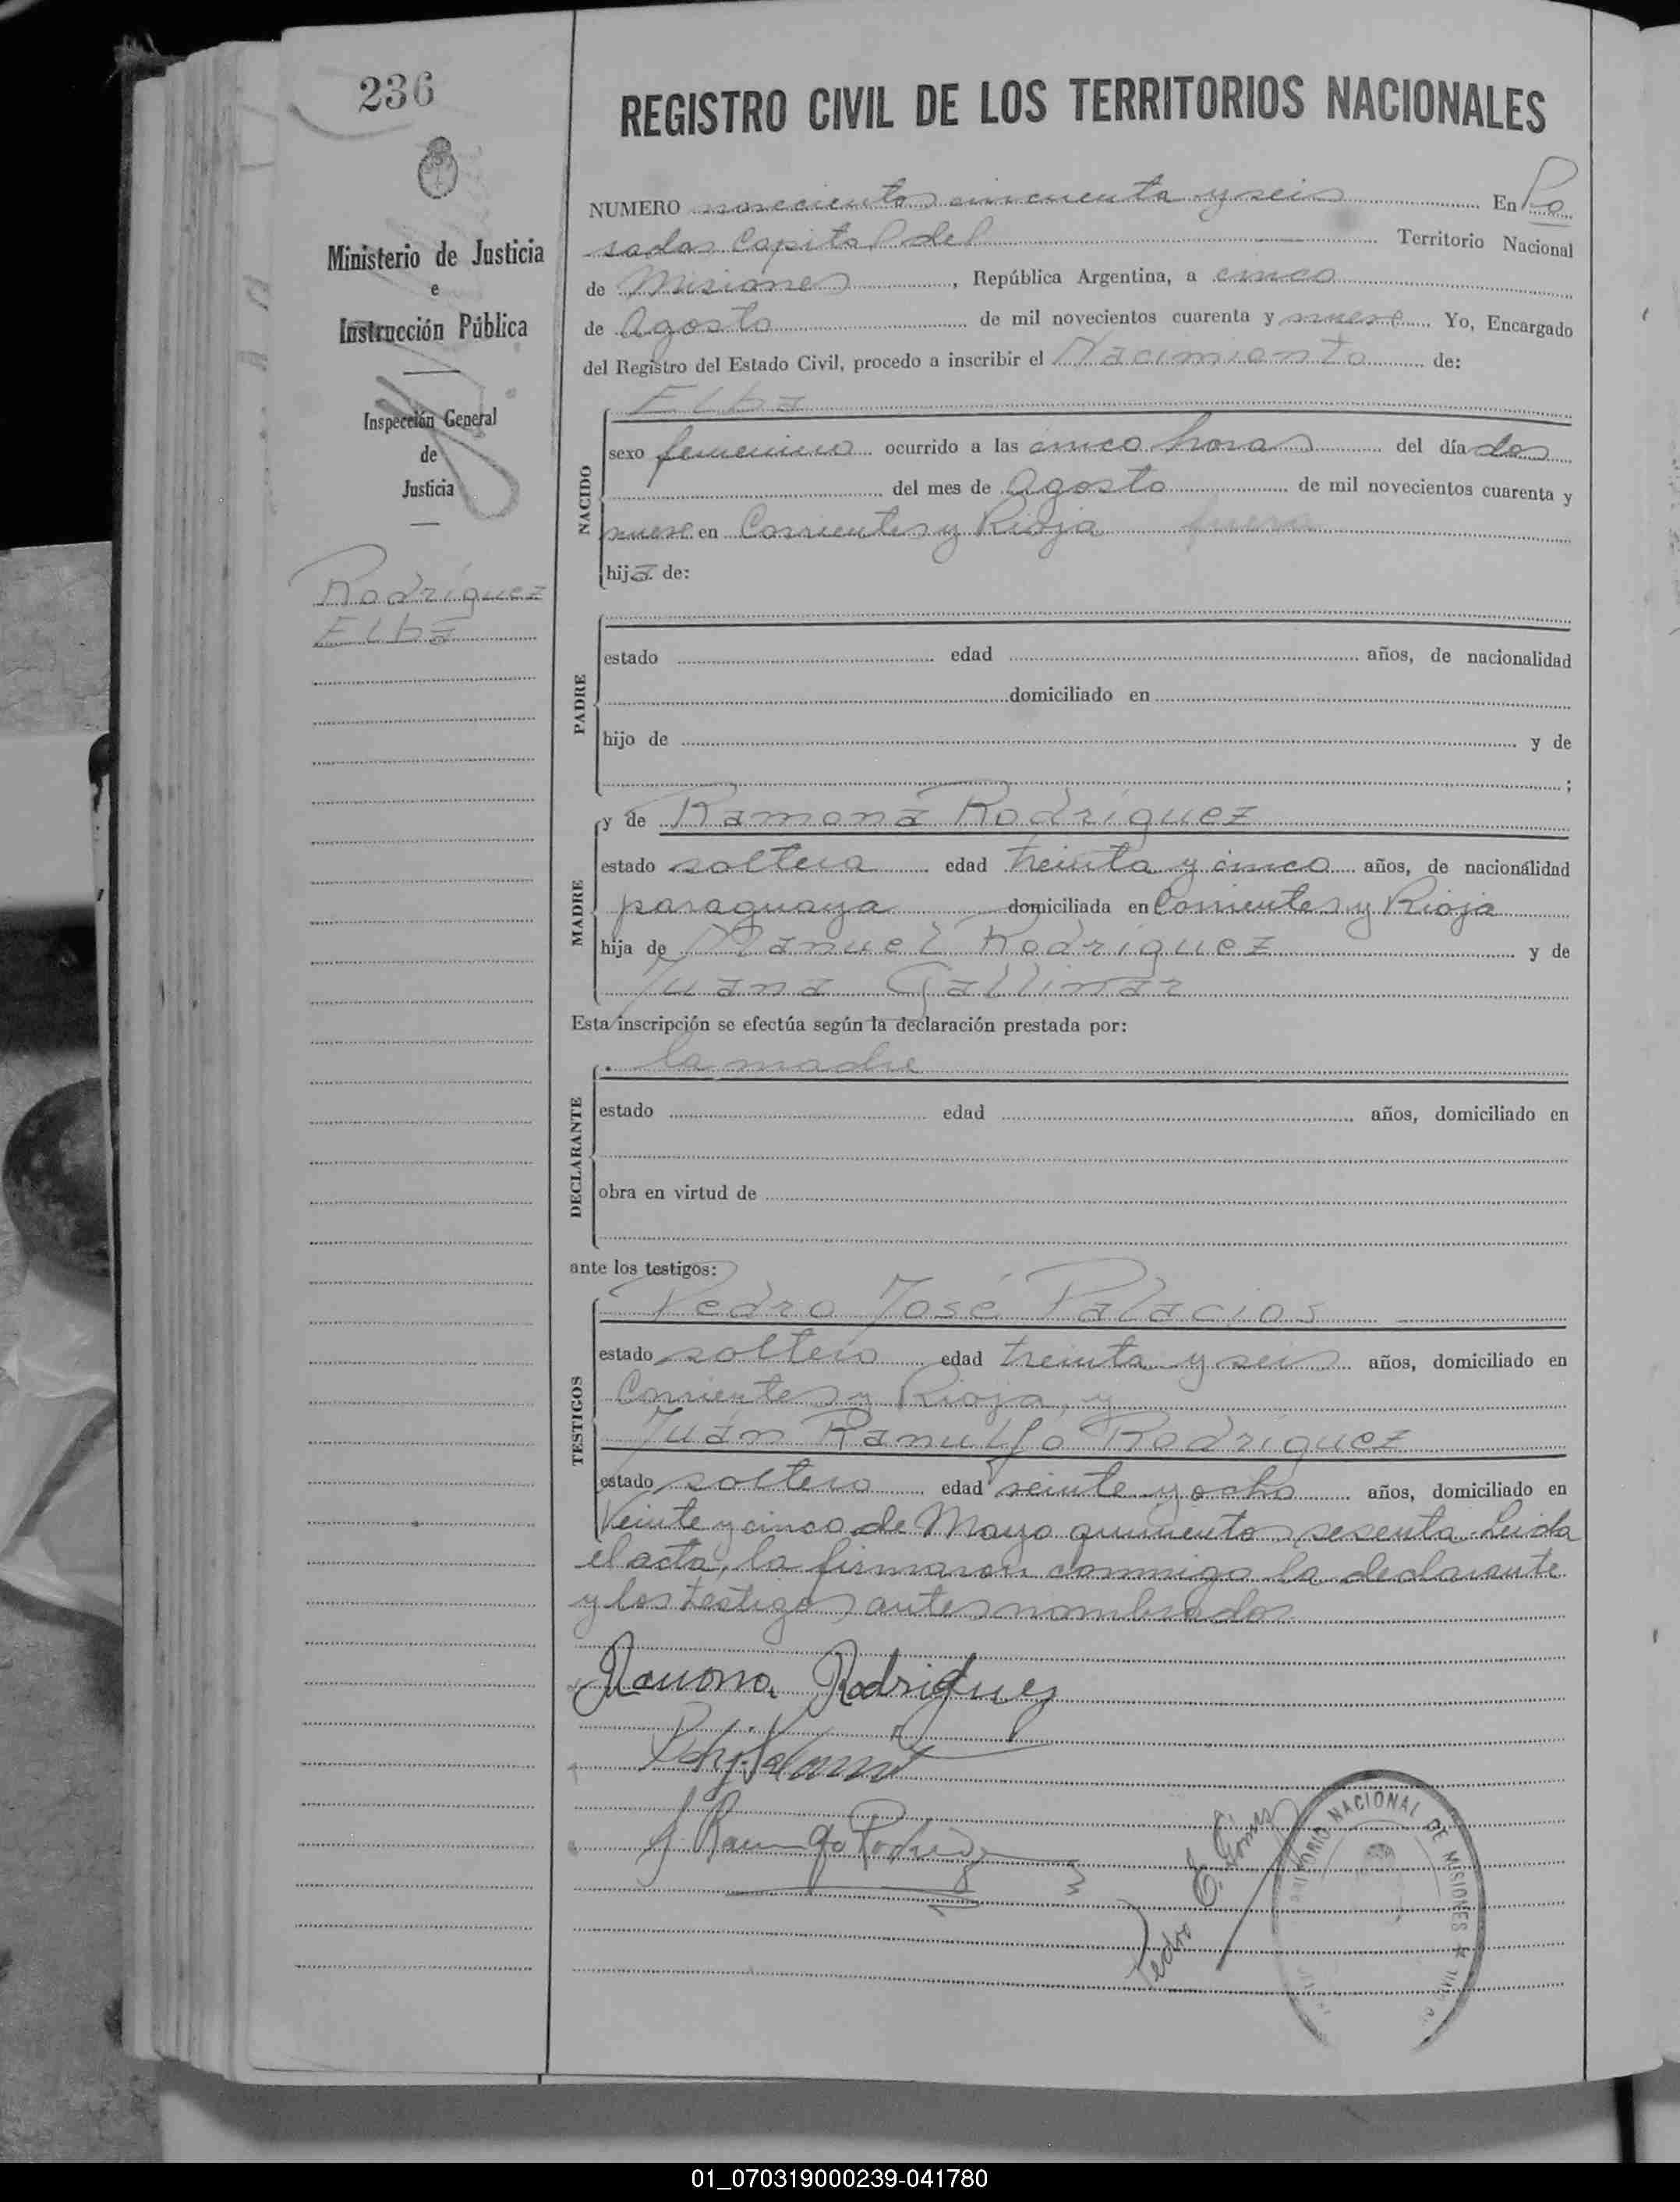 236
REGISTRO CIVIL DE LOS TERRITORIOS NACIONALES
Ministerio de Justicia
e
Instrucción Pública
Inspección General
de
Justicia
Rodríguez
Elba
NUMERO novecientos cincuenta y seis En Po
sadas Capital del Territorio Nacional
de Misiones, República Argentina, a cinco
de Agosto de mil novecientos cuarenta y nueve Yo, Encargado
del Registro del Estado Civil, procedo a inscribir el Nacimiento de:
NACIDO
Elba
sexo femenino ocurrido a las cinco horas del día dos
del mes de Agosto de mil novecientos cuarenta y
nueve en Corrientes y Rioja
hija de:
PADRE
estado edad años, de nacionalidad
domiciliado en
hijo de y de
;
MADRE
y de Ramona Rodríguez
estado soltera edad treinta y cinco años, de nacionalidad
paraguaya domiciliada en Corrientes y Rioja
hija de Manuel Rodríguez y de
Juana Gallinar
Esta inscripción se efectúa según la declaración prestada por:
DECLARANTE
la madre
estado edad años, domiciliado en
obra en virtud de
ante los testigos:
TESTIGOS
Pedro José Palacios
estado soltero edad treinta y seis años, domiciliado en
Corrientes y Rioja, y
Juán Ranulfo Rodríguez
estado soltero edad veinte y ocho años, domiciliado en
Veinte y cinco de Mayo quinientos sesenta. Leida
el acta, la firmaron conmigo la declarante
y los testigos antes nombrados
Ramona Rodriguez
Pedro E. Gómez
TERRITORIO NACIONAL DE MISIONES
01_070319000239-041780